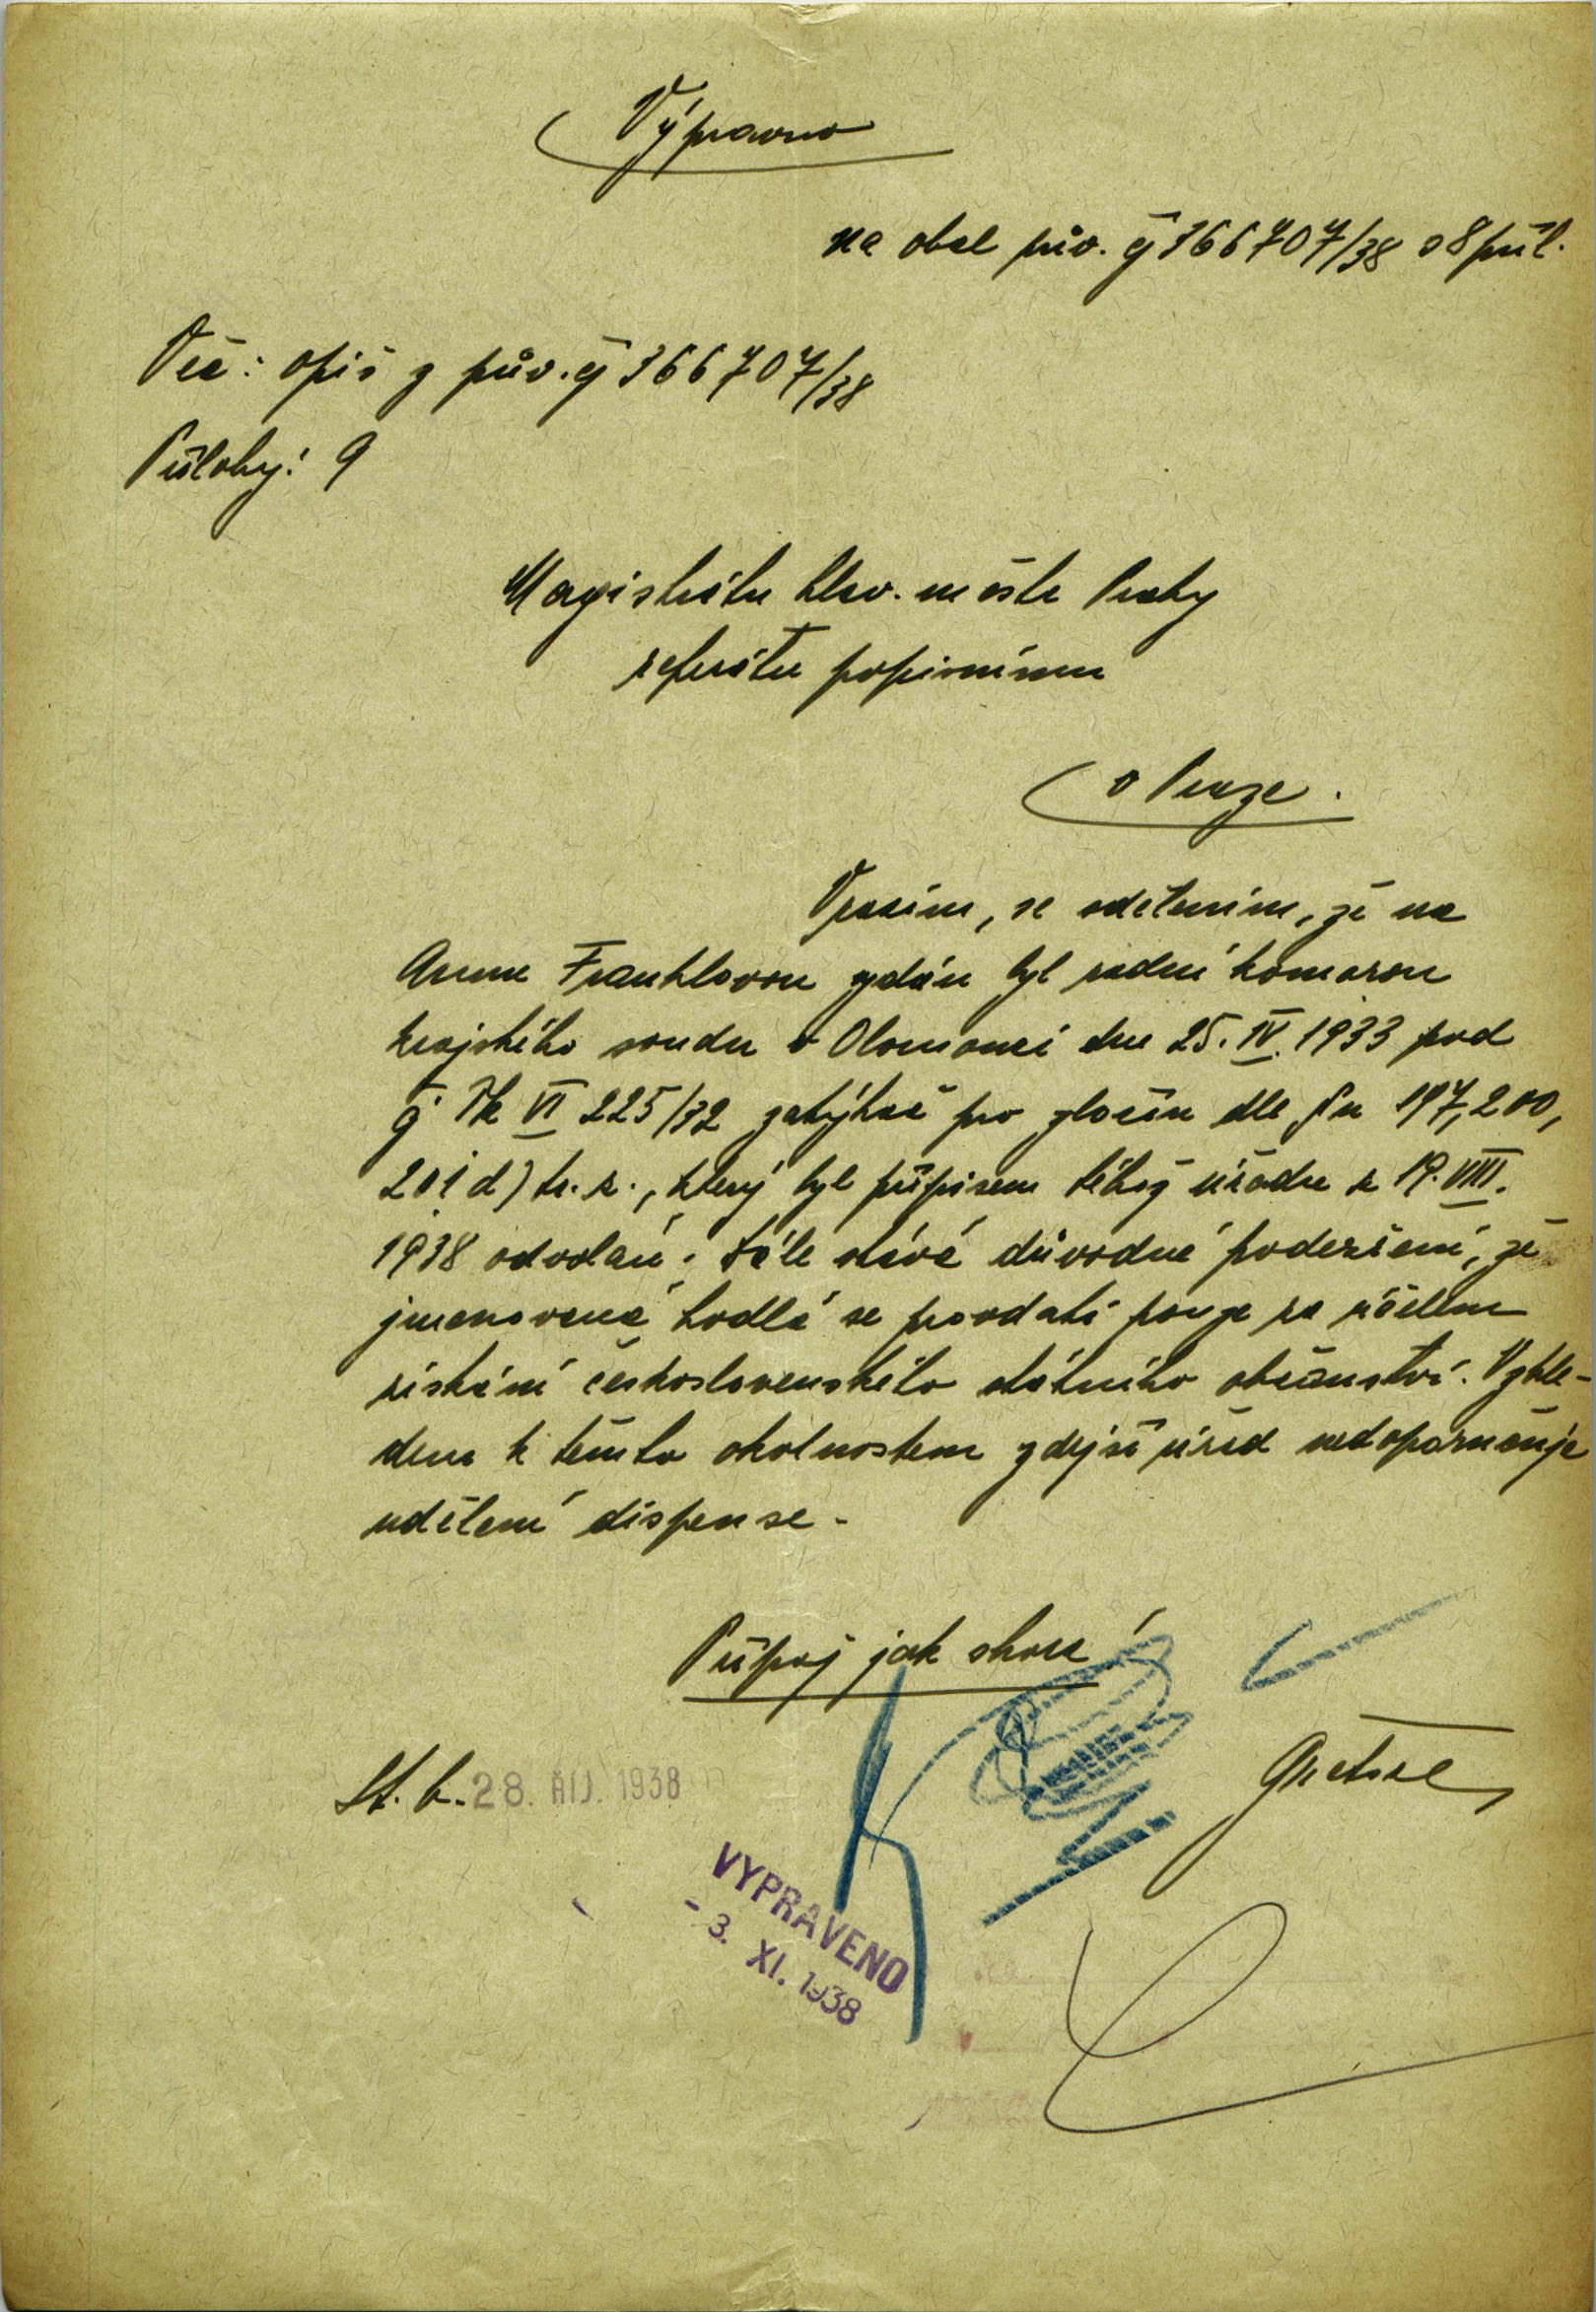 Výpravno
na obal pův. čj 366707/38 s 8 příl.
Věc: opis z pův. čj 366707/38
Přílohy: 9
Magistrátu hlav. města Prahy
referátu popisnímu
v Praze.
Vracím, se sdělením, že na
Annu Franklovou vydán byl radní komorou
krajského soudu v Olomouci dne 25. IV. 1933 pod
čj Tk VI 225/32 zatýkač pro zločin dle §u 197, 200,
201 d) tr. z., který byl přípisem téhož úřadu z 19. VIII.
1938 odvolán; dále stává důvodné podezření, že
jmenovaná hodlá se provdati pouze za účelem
získání československého státního občanství. Vzhle-
dem k těmto okolnostem zdejší úřad nedoporučuje
udělení dispense.
Připoj jak shora!
St. b. 28. ŘÍJ. 1938
VYPRAVENO
- 3. XI. 1938